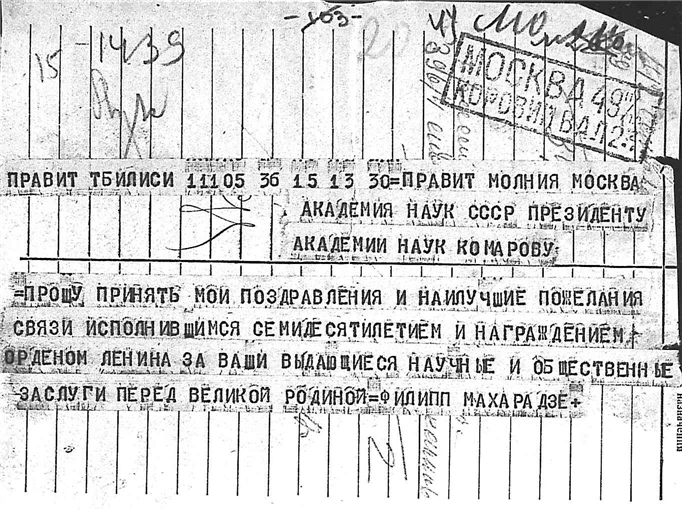 -163-
15 - 1439
20
МОСКВА 49
КОРОВИЙ ВАЛ 2
ПРАВИТ ТБИЛИСИ 11105 36 15 13 30=ПРАВИТ МОЛНИЯ МОСКВА
АКАДЕМИЯ НАУК СССР ПРЕЗИДЕНТУ
АКАДЕМИИ НАУК КОМАРОВУ
=ПРОШУ ПРИНЯТЬ МОИ ПОЗДРАВЛЕНИЯ И НАИЛУЧШИЕ ПОЖЕЛАНИЯ
СВЯЗИ ИСПОЛНИВШИМСЯ СЕМИДЕСЯТИЛЕТИЕМ И НАГРАЖДЕНИЕМ
ОРДЕНОМ ЛЕНИНА ЗА ВАШИ ВЫДАЮЩИЕСЯ НАУЧНЫЕ И ОБЩЕСТВЕННЫЕ
ЗАСЛУГИ ПЕРЕД ВЕЛИКОЙ РОДИНОЙ=ФИЛИПП МАХАРАДЗЕ+